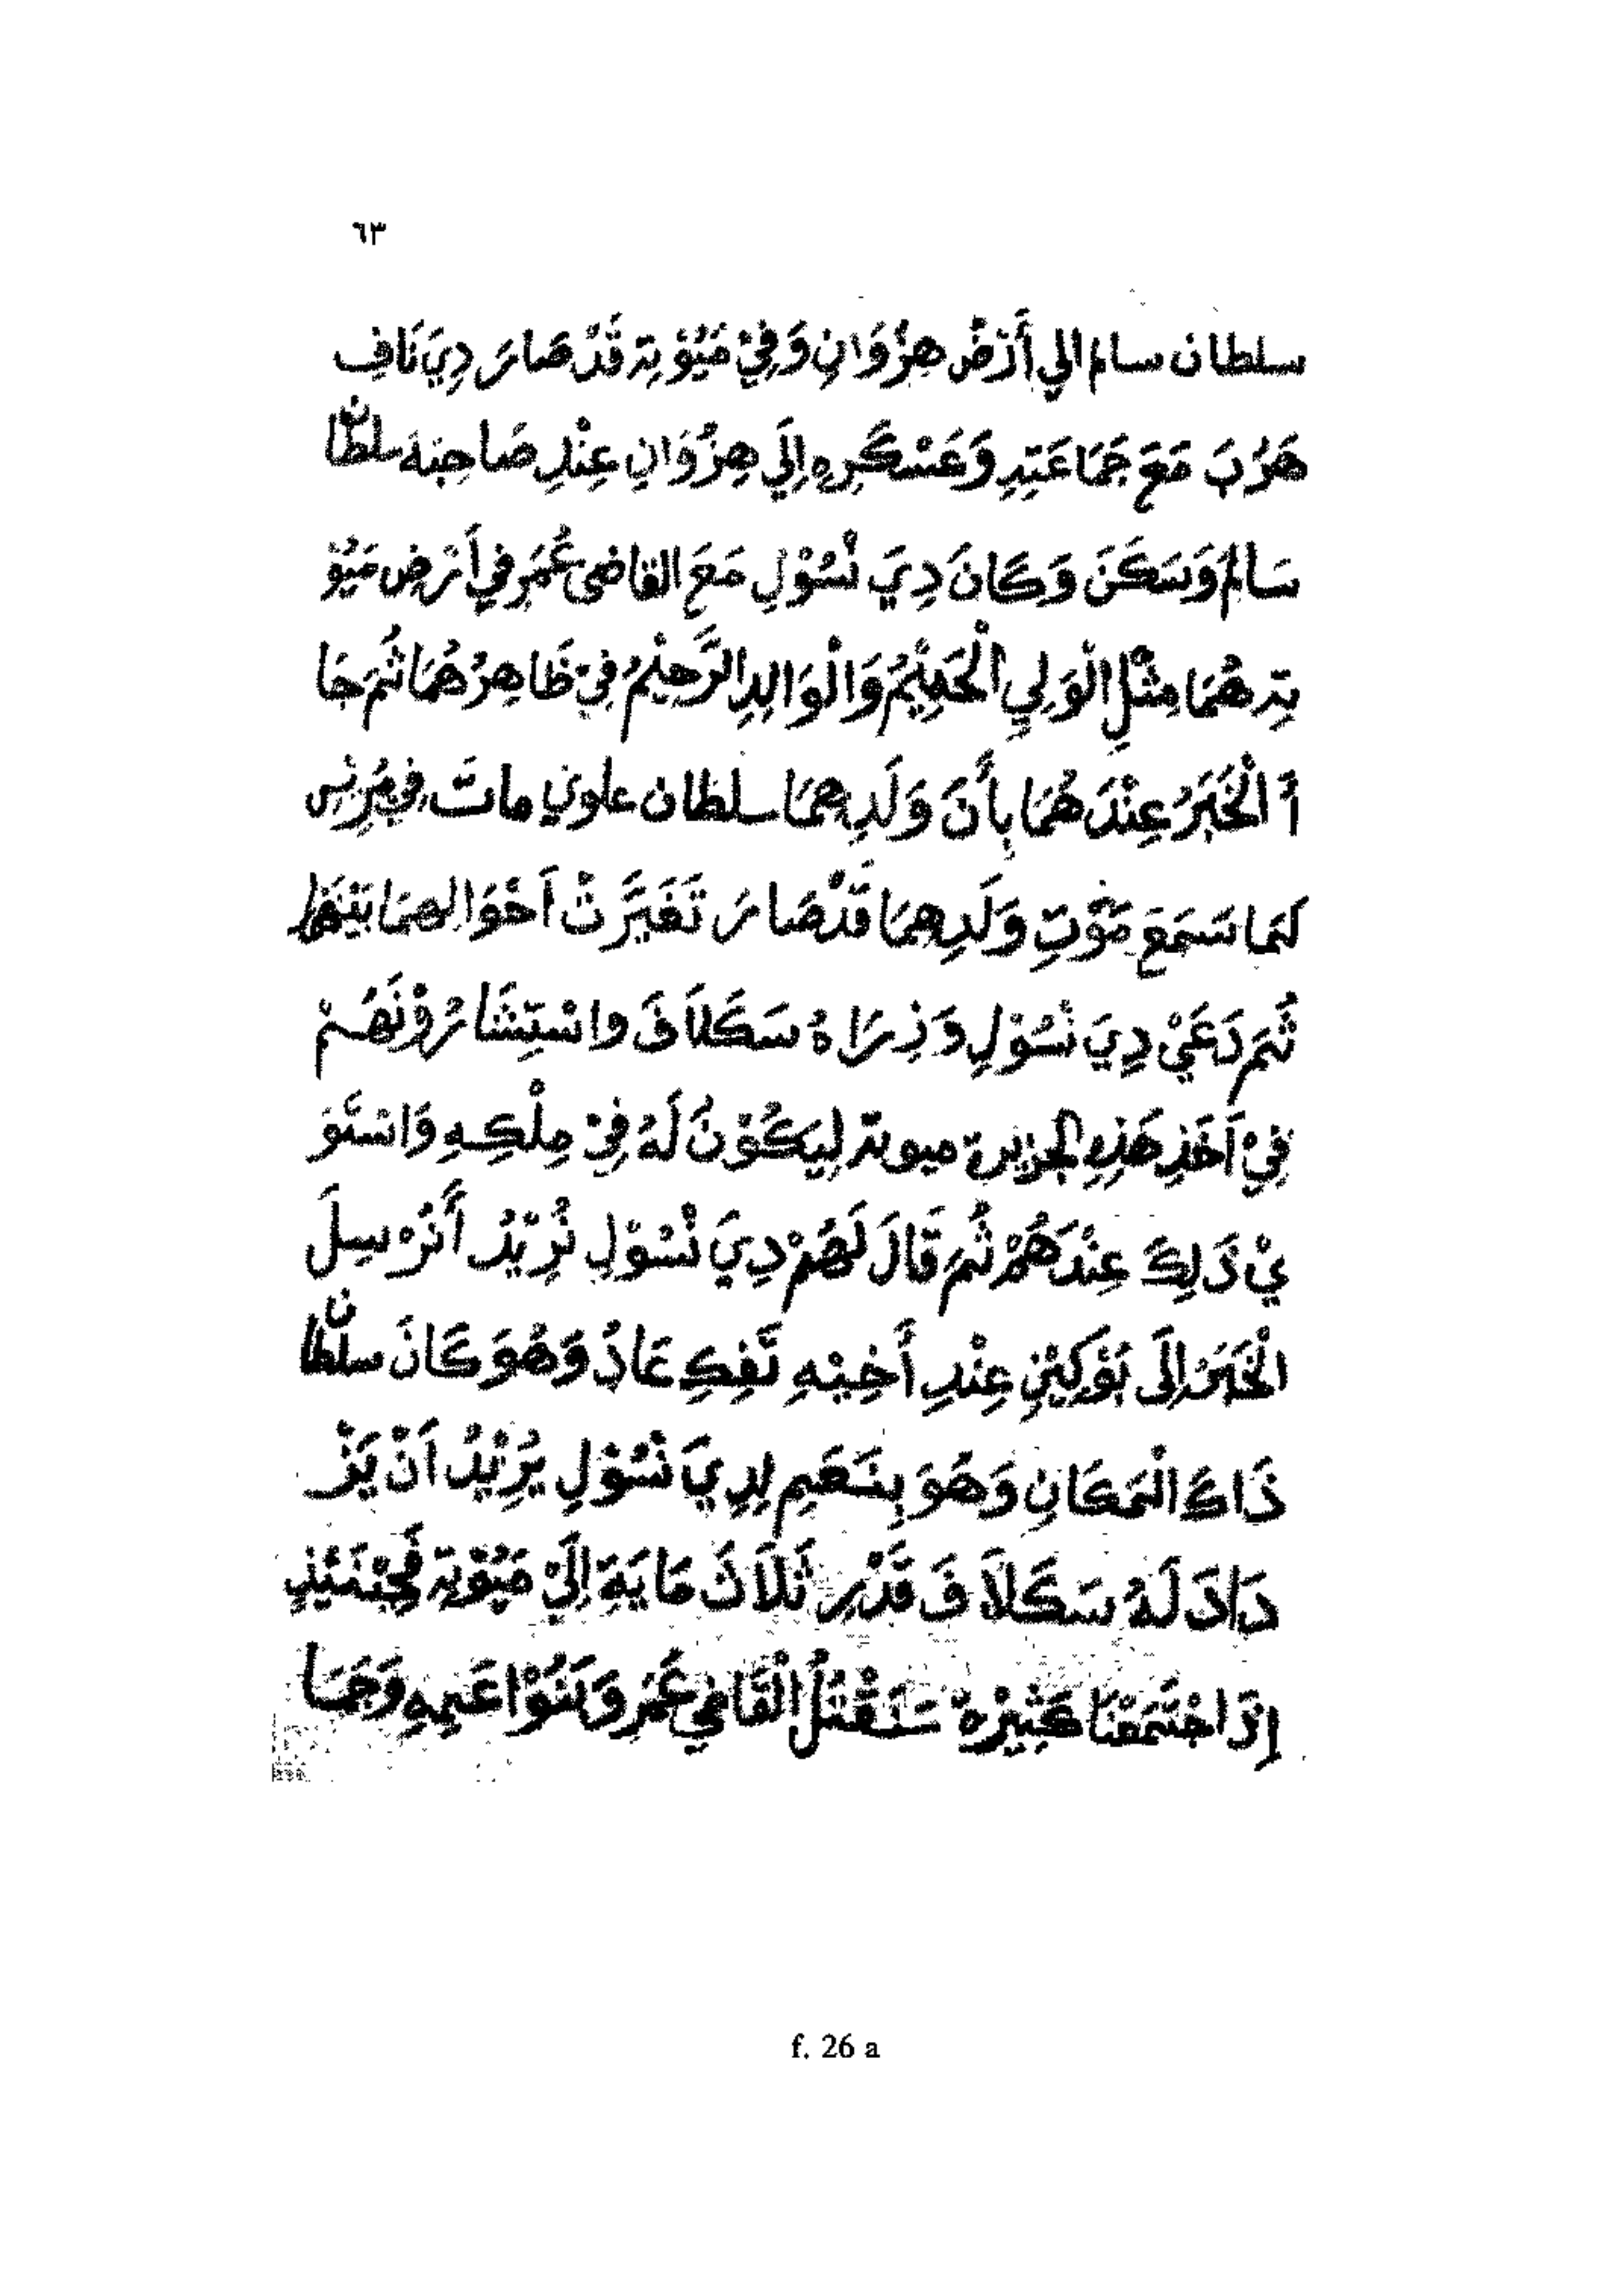 ٦٣
سلطان سالم الي أَرْضْ هِزُوَانِ وَفِيْ مَيُوْتِة قَدْ صَارَ دِيَ نَافِ
هَرُبَ مَعَ جَمَاعَتِهِ وَعَسْكَرِهِ إِلَي هِزُوَانِ عِنْدِ صَاحِبْهَ سلطان
سَالِمُ وَسَكَنَ وَكَانَ دِيَ نْسُوْلِ مَعَ القاضى عُمَرِ في أَرْضِ مَيُوْ
تِة هُمَا مِثْلِ الْوَلِي الْحَمِيْمُ وَالْوَالِدِ الرَّحِيْمُ فِيْ ظَاهِرُهُمَا ثُمَ جَا
أَ الْخَبَرُ عِنْدَهُمَا بِأَنَ وَلَدِهِمَا سلطان علوي ماتَ فِي
لَمَا سَمَعَ مَوْتِ وَلَدِهِمَا قَدْ صَارَ تَغَيَّرَتْ اَحْوَالهمَا بَيْنَهُمَا
ثُمَ دَعَيْ دِيَ نْسُوْلِ وَزِرَاهُ سَكَلَافَ واسْتِشَارُوْنَهُمْ
فِيْ اَخَذِ هَذِهِ الجزيرة ميوتة لِيَكُوْنُ لَهُ فِيْ مِلْكِهِ وَاسْتَوَ
يْ ذَلِكَ عِنْدَهُمْ ثُمَ قَالَ لَهُمْ دِيَ نْسُوْلِ نُرِيْدُ أَنُرْسِلَ
الْخَبَرُ اِلَى بَوْكِيْنِ عِنْدِ أَخِيْهِ نَفِكِ عَادُ وَهُوَ كَانَ سلطان
ذَاكَ الْمَكَانِ وَهُوَ بِنَعَمِ لِدِيَ نْسُوْلِ يُرِيْدُ اَنْ يَزْ
دَادَ لَهُ سَكَلَافَ قَدْرِ ثَلَاثَ مَايَةِ إِلَيْ مَيُوْتِة فَحِيْنَئِذٍ
إِذَا اجْتَمَعْنَا كَثِيْرَةْ سَنَقْتُلُ الْقَاضِي عُمَرِ وَبَنُوْا عَمِهِ وَجَمَا
f. 26 a